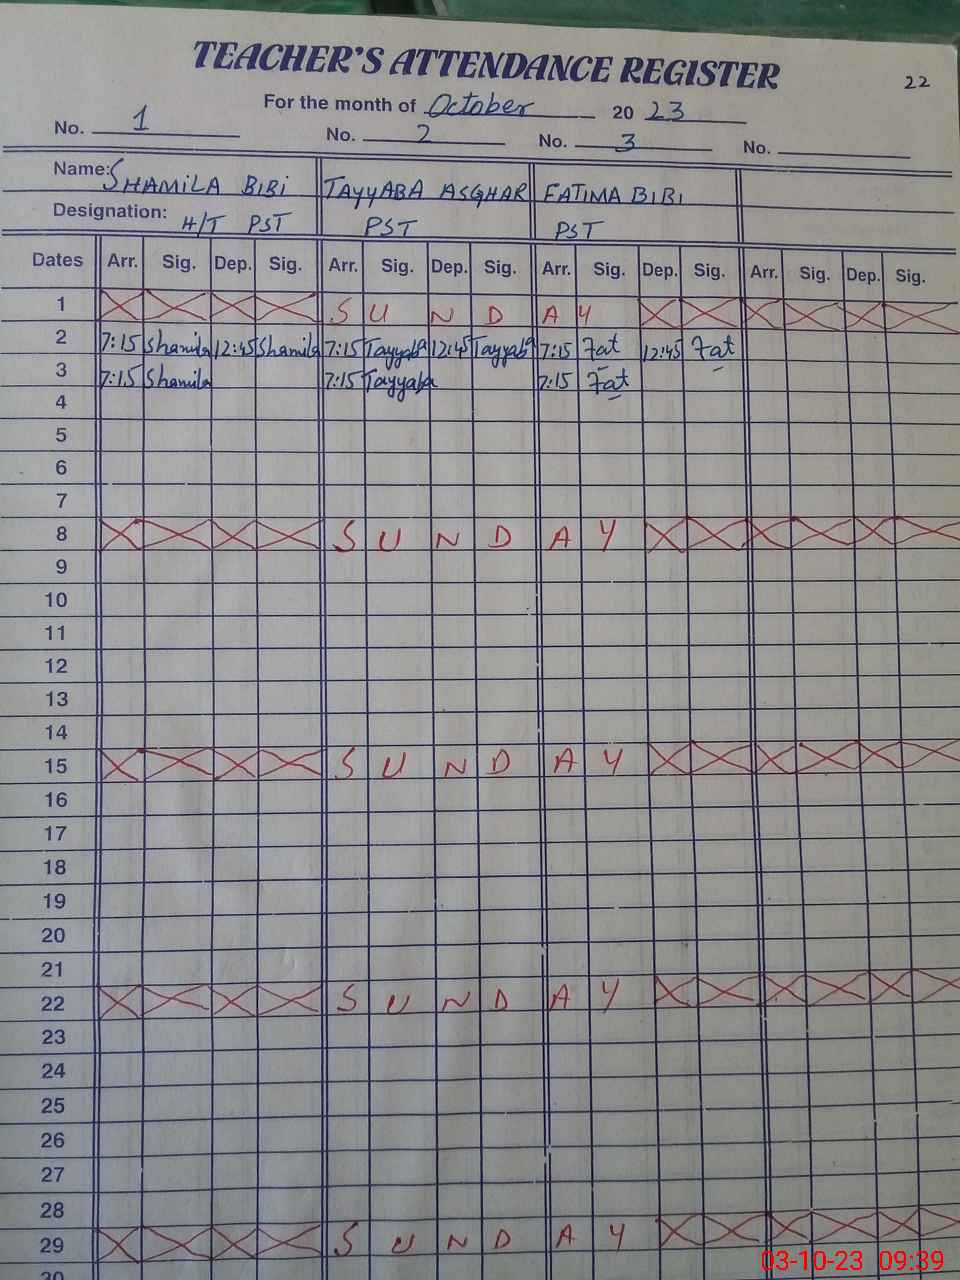 TEACHER'S ATTENDANCE REGISTER
22
For the month of October 20 23
No. 1 No. 2 No. 3 No.
Name: SHAMILA BIBI TAYYABA ASGHAR FATIMA BIBI
Designation: H/T PST PST PST
Dates Arr. Sig. Dep. Sig. Arr. Sig. Dep. Sig. Arr. Sig. Dep. Sig. Arr. Sig. Dep. Sig.
1 S U N D A Y
2 7:15 Shamila 12:45 Shamila 7:15 Tayyaba 12:45 Tayyaba 7:15 Fat 12:45 Fat
3 7:15 Shamila 7:15 Tayyaba 7:15 Fat
4
5
6
7
8 S U N D A Y
9
10
11
12
13
14
15 S U N D A Y
16
17
18
19
20
21
22 S U N D A Y
23
24
25
26
27
28
29 S U N D A Y
30
03-10-23 09:39